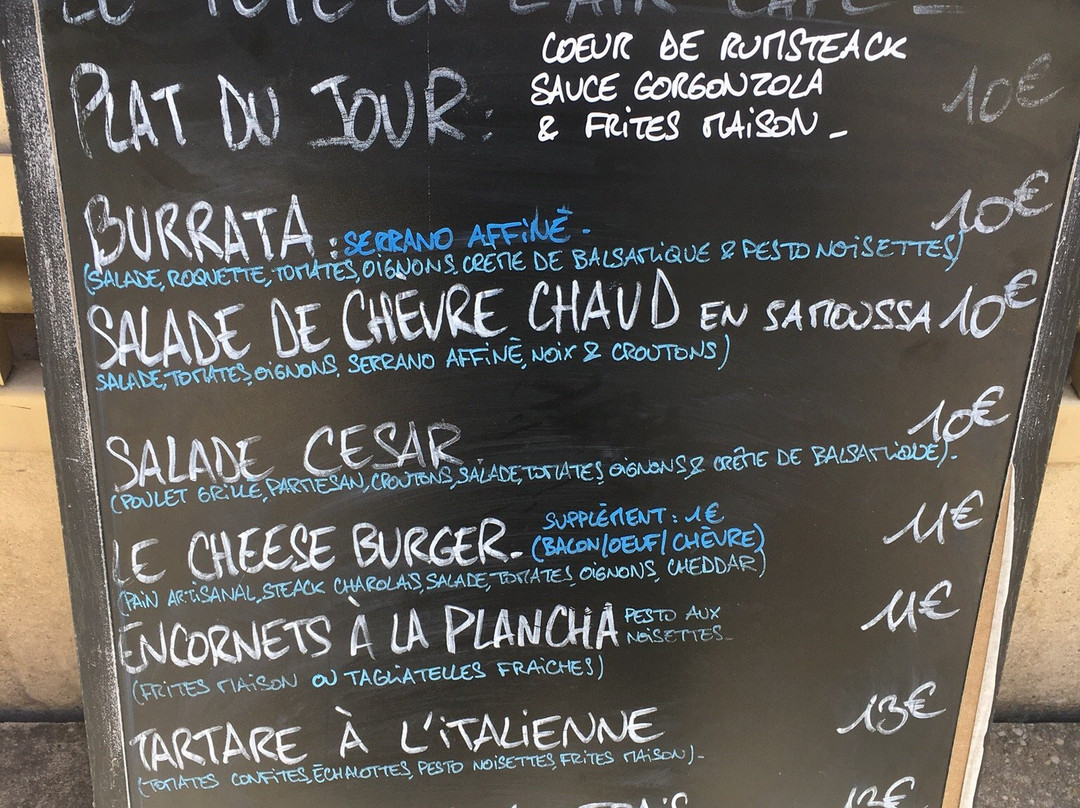 LE TÊTE EN L'AIR CAFÉ
COEUR DE RUMSTEACK
PLAT DU JOUR: SAUCE GORGONZOLA 10€
& FRITES MAISON_
BURRATA: SERRANO AFFINÉ. 10€
(SALADE, ROQUETTE, TOMATES, OIGNONS, CRÈME DE BALSAMIQUE & PESTO NOISETTES)
SALADE DE CHÈVRE CHAUD EN SAMOUSSA 10€
SALADE, TOMATES, OIGNONS, SERRANO AFFINÉ, NOIX & CROUTONS)
SALADE CESAR. 10€
(POULET GRILLE, PARMESAN, CROUTONS, SALADE, TOMATES, OIGNONS & CRÊME DE BALSAMIQUE).
SUPPLÉMENT: 1€
LE CHEESE BURGER. (BACON/OEUF/CHÈVRE) 11€
(PAIN ARTISANAL, STEACK CHAROLAIS, SALADE, TOMATES, OIGNONS, CHEDDAR)
ENCORNETS À LA PLANCHA PESTO AUX NOISETTES_ 11€
(FRITES MAISON OU TAGLIATELLES FRAICHES)
TARTARE À L'ITALIENNE 13€
(TOMATES CONFITES, ÉCHALOTTES, PESTO NOISETTES, FRITES MAISON)_